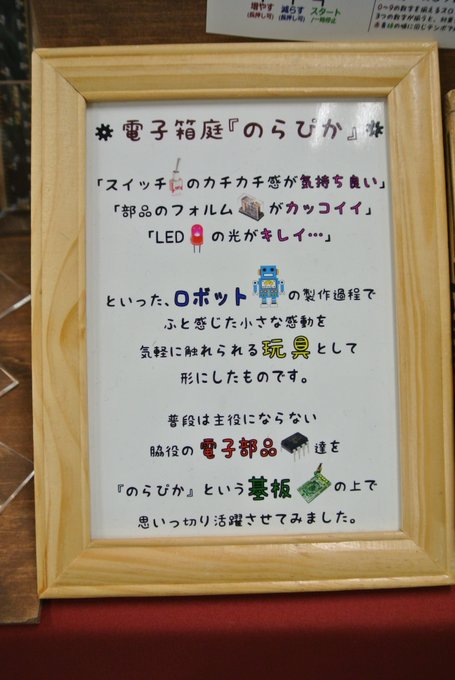 増やす 減らす スタート
(長押し可) (長押し可) /一時停止
電子箱庭『のらぴか』
「スイッチのカチカチ感が気持ち良い」
「部品のフォルムがカッコイイ」
「LEDの光がキレイ…」
といった、ロボットの製作過程で
ふと感じた小さな感動を
気軽に触れられる玩具として
形にしたものです。
普段は主役にならない
脇役の電子部品達を
『のらぴか』という基板の上で
思いっ切り活躍させてみました。